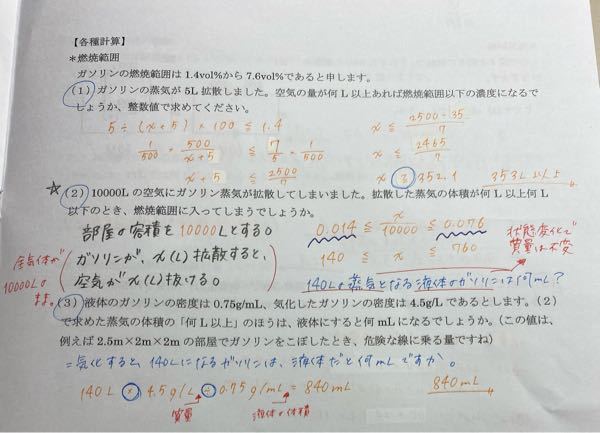 【各種計算】
*燃焼範囲
ガソリンの燃焼範囲は 1.4vol%から 7.6vol%であると申します。
(1) ガソリンの蒸気が 5L 拡散しました。空気の量が何 L 以上あれば燃焼範囲以下の濃度になるで
しょうか、整数値で求めてください。
5 ÷ (x+5) × 100 ≦ 1.4
x ≧ 2500-35/7
1/500 × 500/x+5 ≦ 7/5 × 1/500
x ≧ 2465/7
x+5 ≦ 2500/7
x ≧ 352.1
353L以上
☆(2) 10000L の空気にガソリン蒸気が拡散してしまいました。拡散した蒸気の体積が何 L 以上何 L
以下のとき、燃焼範囲に入ってしまうでしょうか。
部屋の容積を10000Lとする。
0.014 ≦ x/10000 ≦ 0.076
状態変化で
質量は不変
ガソリンが、x(L)拡散すると、
空気がx(L)抜ける。
140 ≦ x ≦ 760
全気体が
10000Lの
まま。
140Lの蒸気となる液体のガソリンは何mL?
(3) 液体のガソリンの密度は 0.75g/mL、気化したガソリンの密度は 4.5g/L であるとします。(2)
で求めた蒸気の体積の「何 L 以上」のほうは、液体にすると何 mL になるでしょうか。(この値は、
例えば 2.5m×2m×2m の部屋でガソリンをこぼしたとき、危険な線に乗る量ですね)
=気化すると、140Lになるガソリンは、液体だと何mLですか。
140L × 4.5g/L ÷ 0.75g/mL = 840mL
840mL
質量
液体の体積